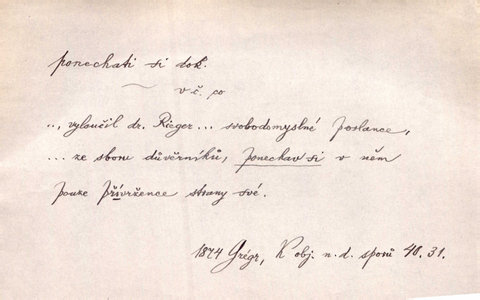 ponechati si dok.
v č. co
.., vyloučil dr. Rieger... svobodomyslné poslance,
... ze sboru důvěrníků, ponechav si v něm
pouze přívržence strany své.
1874 Grégr, K obj. n. d. sporů 48.31.